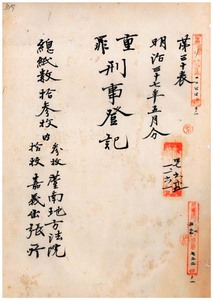 第三十表
明治三十七年五月分
重罪刑事登記
總紙數拾參枚內
參枚 臺南地方法院
拾枚 嘉義出張所